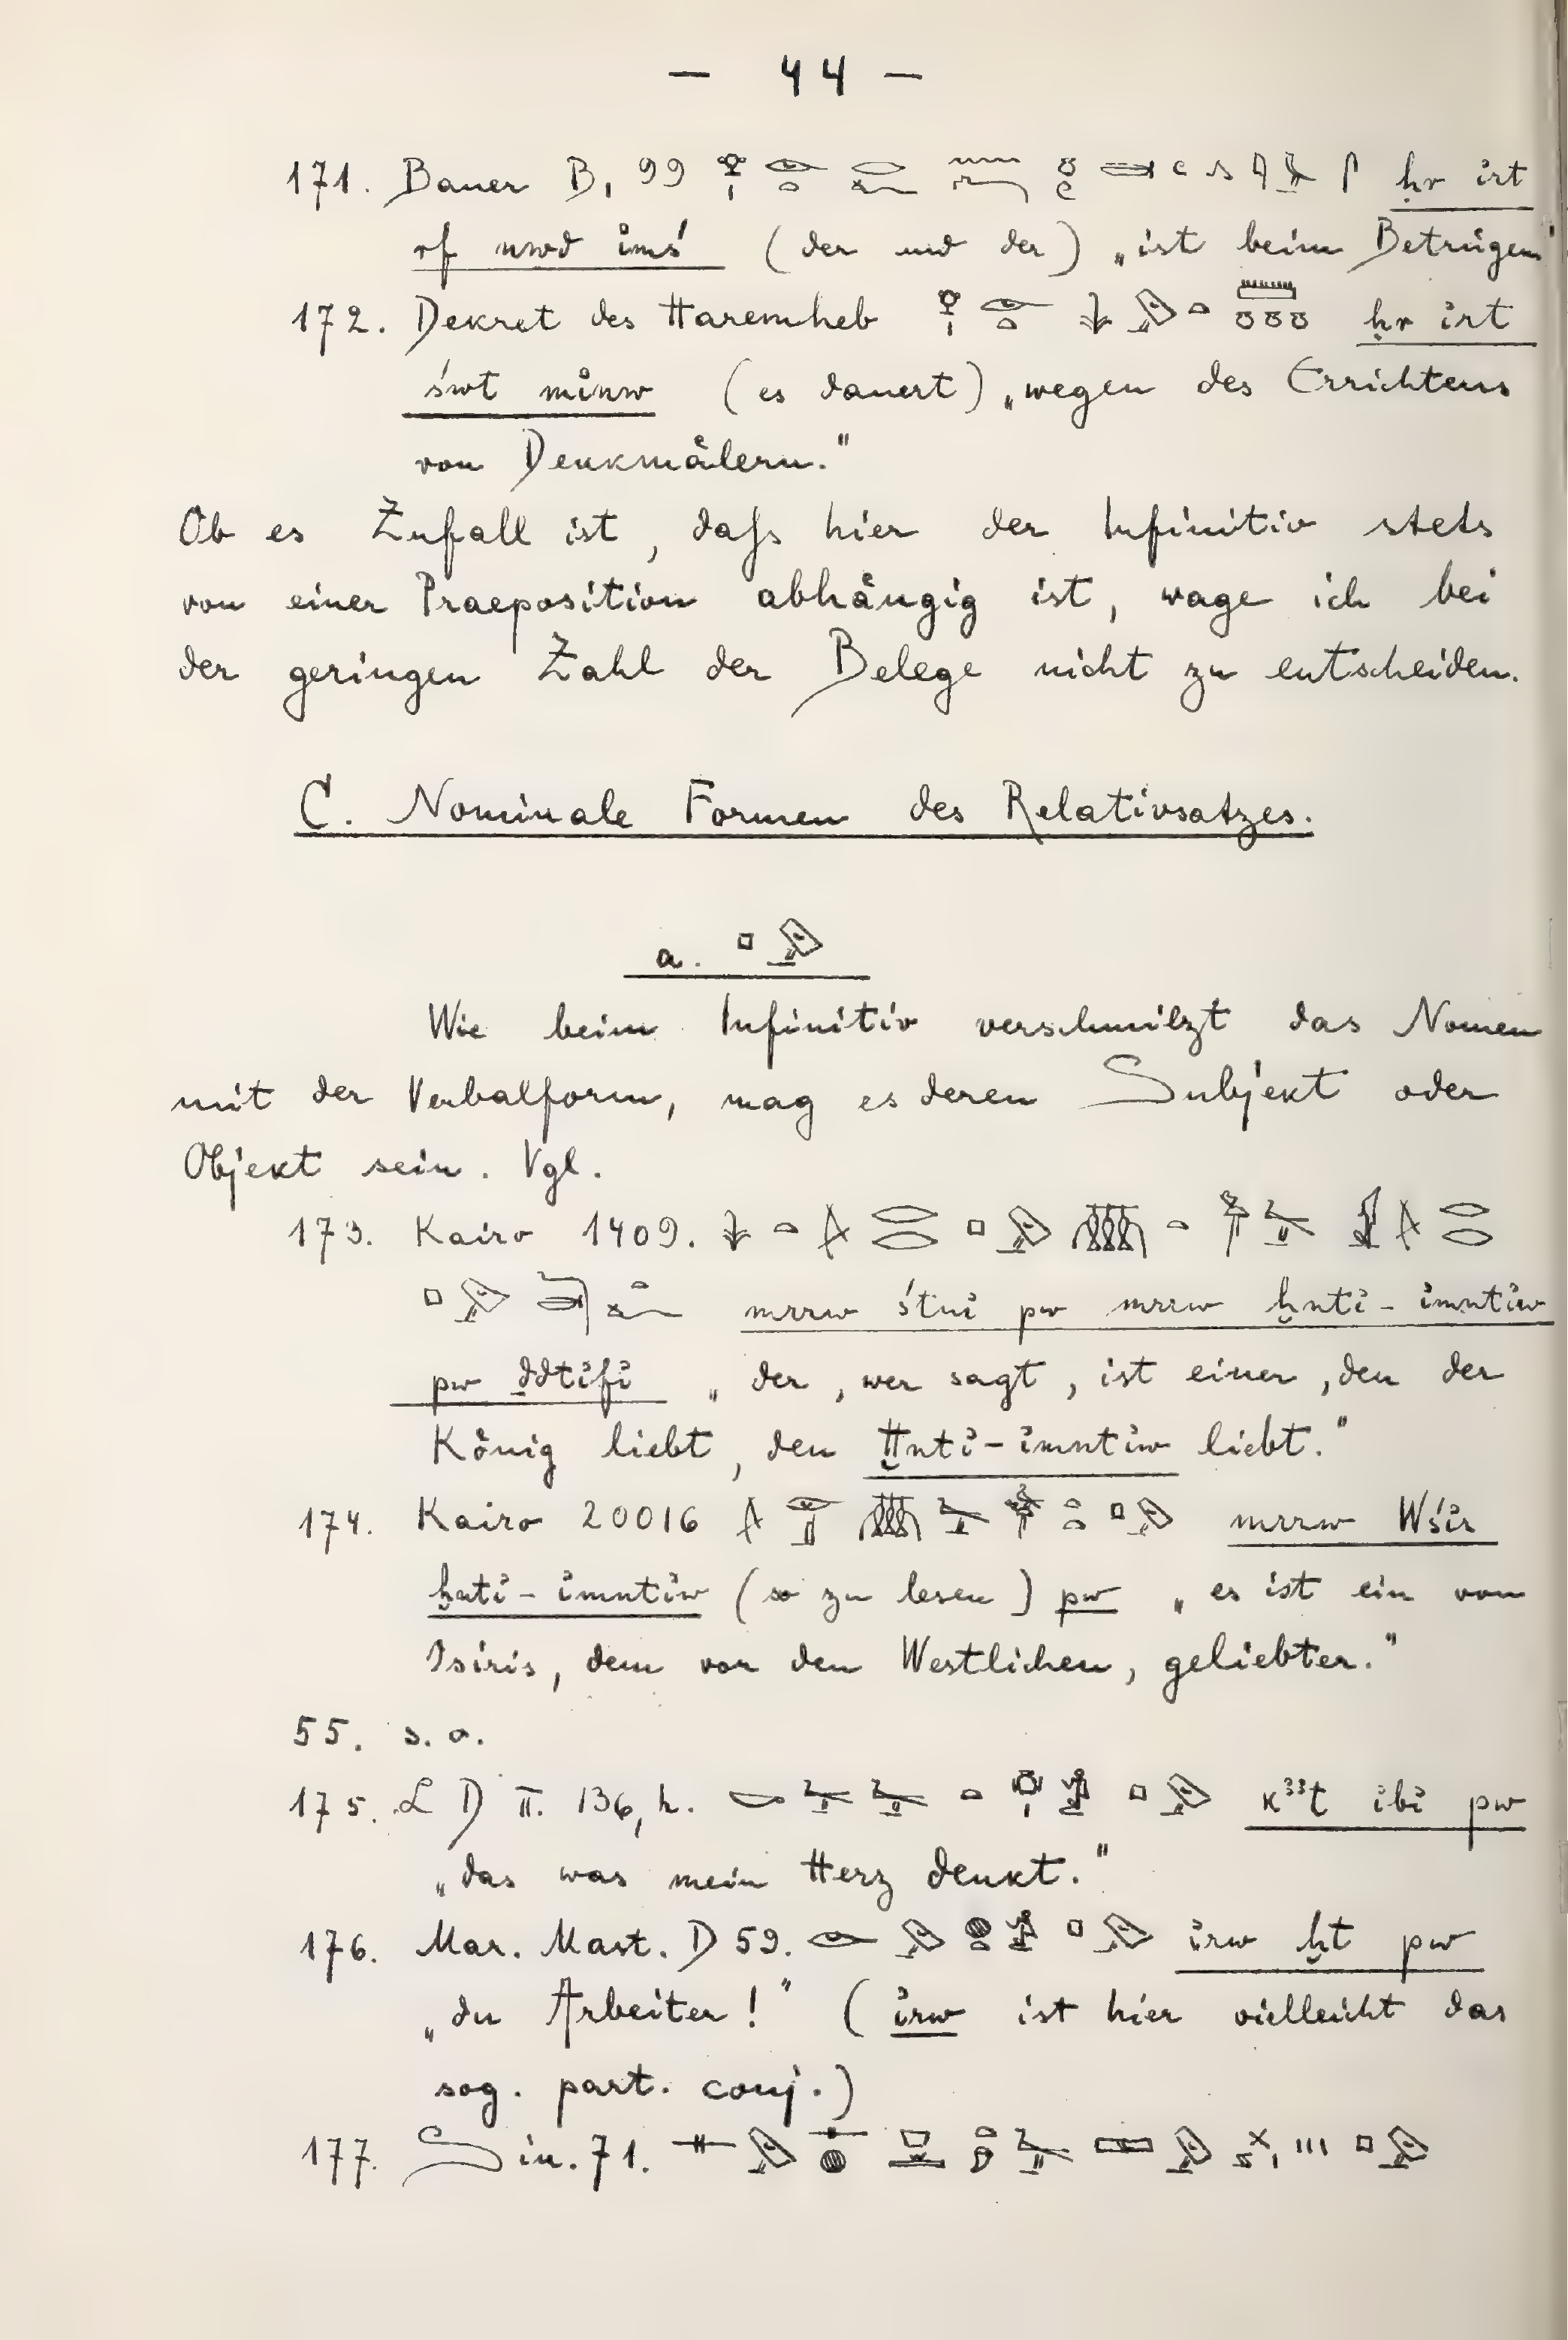 — 44 —
171. Bauer B, 99 ḥr irt
rf nwd imś (der und der) „ist beim Betrügen"
172. Dekret des Haremheb ḥr irt
św​t minw (es dauert) „wegen des Errichtens
von Denkmälern."
Ob es Zufall ist, dafs hier der Infinitiv stets
von einer Praeposition abhängig ist, wage ich bei
der geringen Zahl der Belege nicht zu entscheiden.
C. Nominale Formen des Relativsatzes.
a. 𓊪𓅱
Wie beim Infinitiv verschmilzt das Nomen
mit der Verbalform, mag es deren Subjekt oder
Objekt sein. Vgl.
173. Kairo 1409.
mrrw śtni pw mrrw ḫnti-imntiw
pw ḏdtifi „der, wer sagt, ist einer, den der
König liebt, den Ḫnti-imntiw liebt."
174. Kairo 20016 mrrw Wśir
ḫnti-imntiw (so zu lesen) pw „es ist ein vom
Isiris, dem vor den Westlichen, geliebter."
55. s. o.
175. L D II. 136, h. kꜣꜣt ibi pw
„das was mein Herz denkt."
176. Mar. Mast. D 59. irw ḫt pw
„du Arbeiter!" (irw ist hier vielleicht das
sog. part. conj.)
177. Sin. 71.